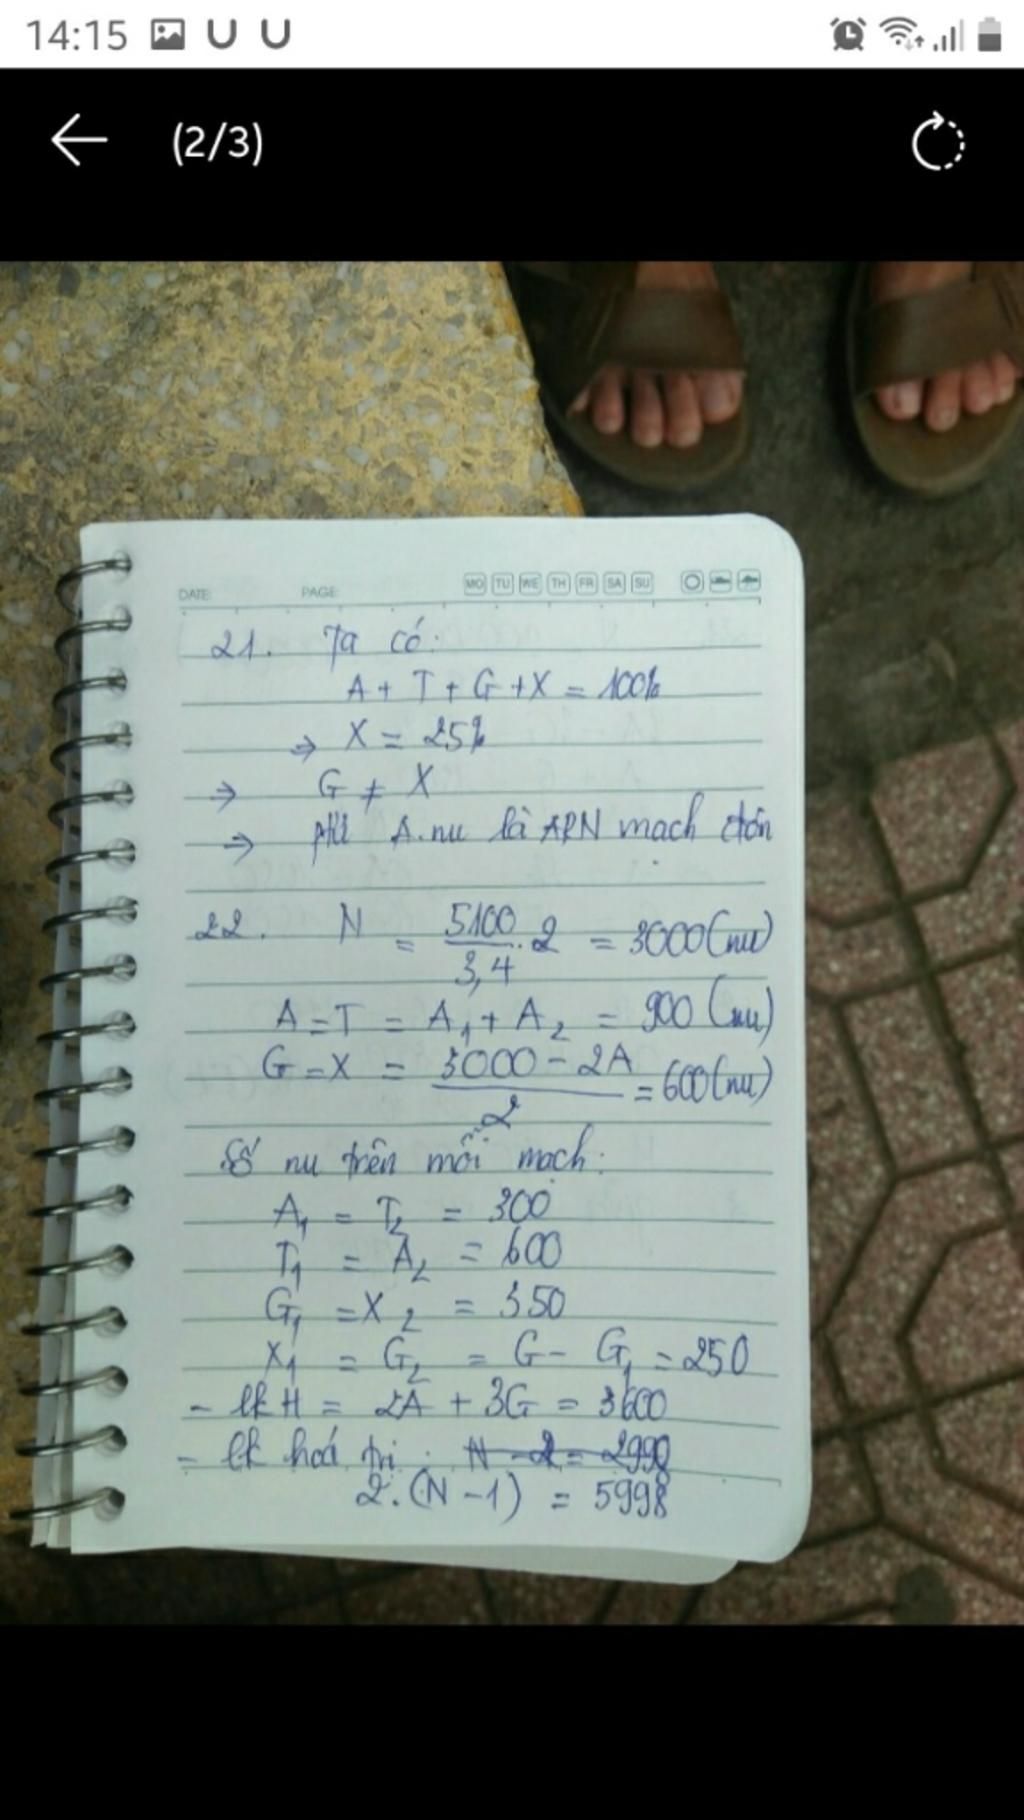 14:15
(2/3)
DATE: PAGE: MO TU WE TH FR SA SU
21. Ta có:
A + T + G + X = 100%
⇒ X = 25%
→ G ≠ X
⇒ A.nu là ADN mạch đơn
22. N = 5100/3,4 . 2 = 3000 (nu)
A = T = A₁ + A₂ = 900 (nu)
G = X = 3000 - 2A / 2 = 600 (nu)
Số nu trên mỗi mạch:
A₁ = T₂ = 300
T₁ = A₂ = 600
G₁ = X₂ = 350
X₁ = G₂ = G - G₁ = 250
- lk H = 2A + 3G = 3600
- lk hoá trị : N - 2 = 2998
2.(N - 1) = 5998